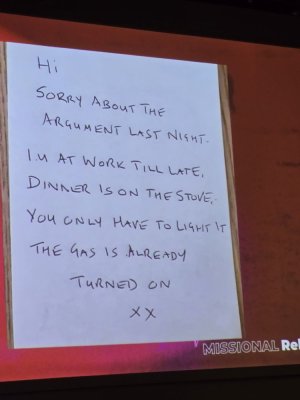 Hi
SORRY ABOUT THE
ARGUMENT LAST NIGHT.
I.M AT WORK TILL LATE,
DINNER IS ON THE STOVE,
YOU ONLY HAVE TO LIGHT IT
THE GAS IS ALREADY
TURNED ON
XX
MISSIONAL Rel